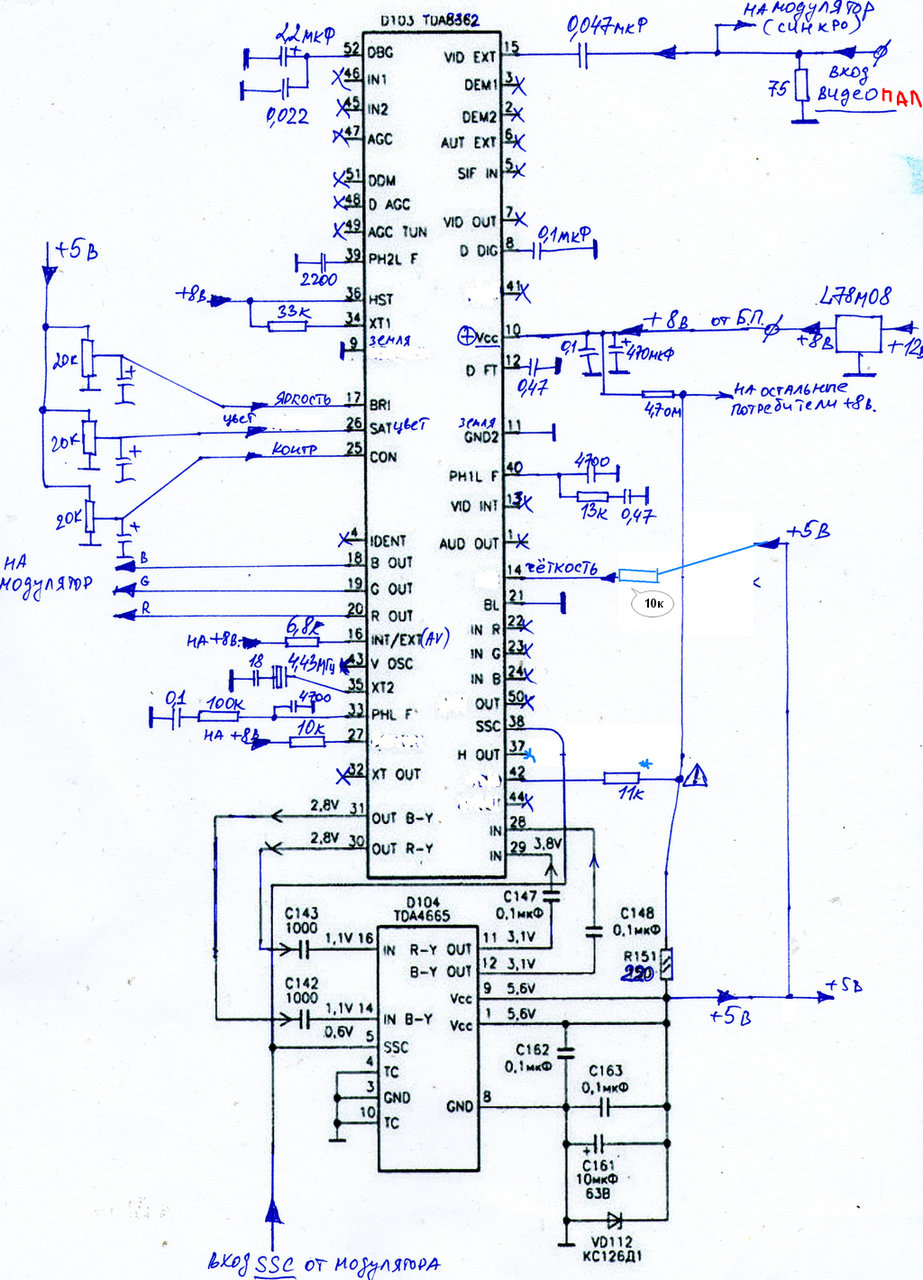 D103 TDA8362
2,2мкФ
0,022
52 DBG
46 IN1
45 IN2
47 AGC
51 DDM
48 D AGC
49 AGC TUN
39 PH2L F
2200
+8в
36 HST
33к
34 XT1
9 земля
+5В
20к
20к
20к
17 BRI
яркость
цвет
26 SAT цвет
25 CON
контр
4 IDENT
18 B OUT
B
19 G OUT
G
20 R OUT
R
НА
модулятор
НА +8в.
6,8к
16 INT/EXT (AV)
43 V OSC
18
4,43мгц
35 XT2
0,1
100к
4700
33 PHL F
НА +8в
10к
27
32 XT OUT
31 OUT B-Y
2,8V
30 OUT R-Y
2,8V
15 VID EXT
0,047мкФ
НА модулятор
(СИНХРО)
75
ВХОД
ВИДЕО ПАЛ
3 DEM1
2 DEM2
6 AUT EXT
5 SIF IN
7 VID OUT
8 D DIG
0,1мкФ
41
10 + Vcc
0,1
470мкФ
+8в от Б.П.
L78M08
+8в
+12в
12 D FT
0,47
4,7ом
НА остальные
потребители +8в.
11 земля
GND2
40 PH1L F
4700
13к
0,47
13 VID INT
1 AUD OUT
14
чёткость
10к
+5В
21 BL
22 IN R
23 IN G
24 IN B
50 OUT
38 SSC
37 H OUT
42
11к
*
44
28 IN
29 IN
3,8V
C147
0,1мкФ
C148
0,1мкФ
D104
TDA4665
C143
1000
1,1V 16 IN R-Y
C142
1000
1,1V 14 IN B-Y
0,6V
5 SSC
4 TC
3 GND
10 TC
OUT 11 3,1V
B-Y OUT 12 3,1V
Vcc 9 5,6V
Vcc 1 5,6V
GND 8
R151
C162
0,1мкФ
C163
0,1мкФ
C161
10мкФ
63В
VD112
КС126Д1
+5В
+5в
ВХОД SSC от модулятора